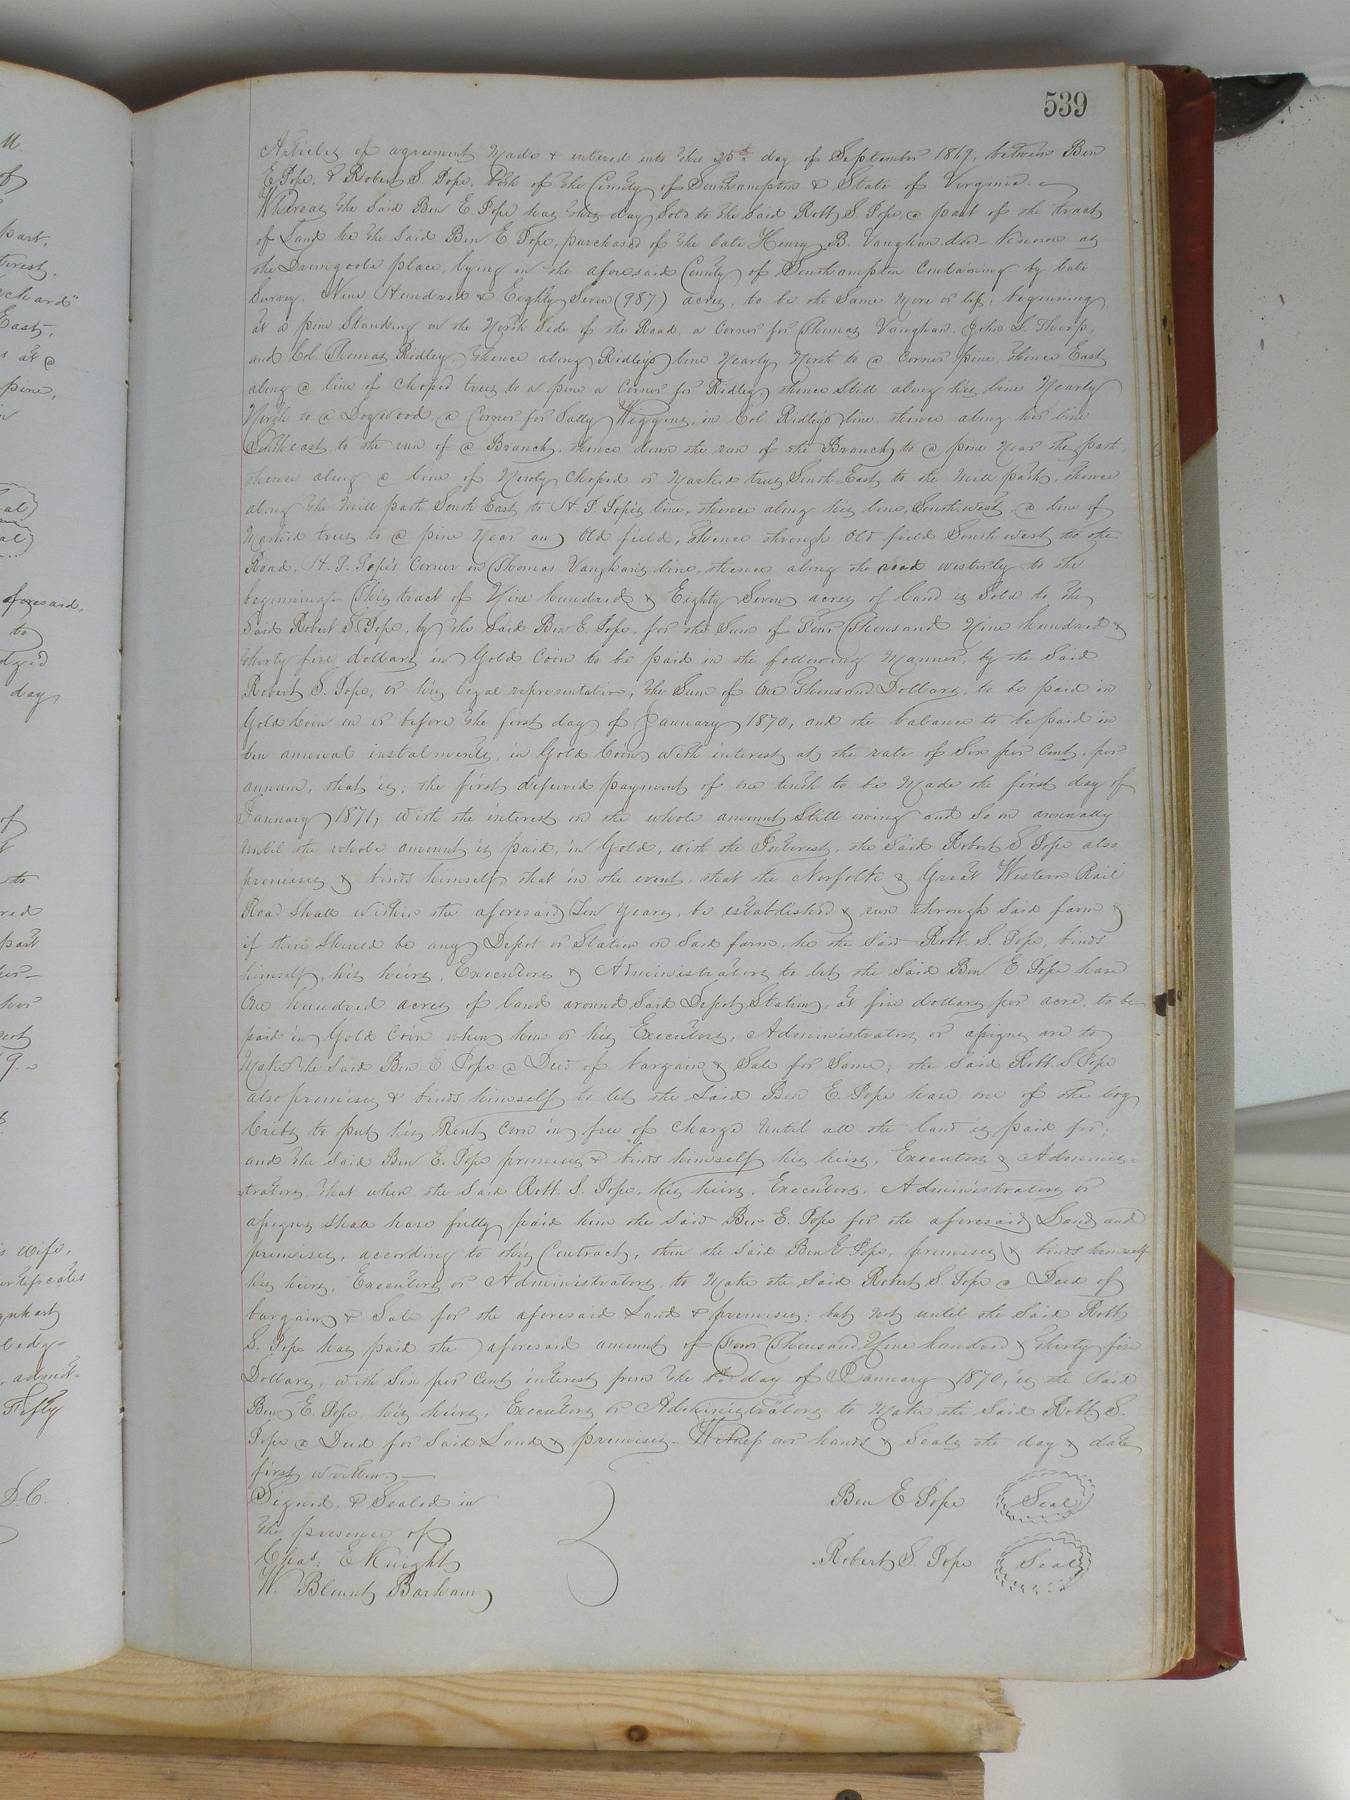 539
Articles of agreement Made & entered into this 25th day of September 1869, between Ben
E Pope, & Robert S. Pope, both of the County of Southampton & State of Virginia.
Whereas the Said Ben E. Pope has this day Sold to the Said Robt S. Pope, a part of the tract
of Land he the Said Ben E Pope, purchased of the late Henry B. Vaughan dcd - Known as
the Drumgoole place, lying in the aforesaid County of Southampton Containing by late
Survey, Nine Hundred & Eighty Seven (987) acres, to be the Same More or less, beginning
at a pine Standing on the North Side of the Road, a Corner for Thomas Vaughan, John S. Thorp,
and Col. Thomas Ridley thence along Ridleys line Nearly North to a Corner pine, thence East
along a line of choped trees to a pine a Corner for Ridley thence Still along his line Nearly
North to a Dogwood, a Corner for Sally Wiggins, in Col. Ridleys line, thence along her line
Southeast, to the run of a Branch, thence down the run of the Branch to a pine Near the path
thence along a line of Newly Choped or Marked trees South East to the Mill path, thence
along the Mill path South East to H. P. Pope's line, thence along his line, Southwest, a line of
Marked trees to a pine Near an Old field, thence through Old field South west to the
Road, H. P. Pope's Corner in Thomas Vaughan's line, thence along the road westerly to the
beginning - This tract of Nine hundred & Eighty Seven acres of land is Sold to the
Said Robert S. Pope, by the Said Ben E Pope, for the Sum of Four Thousand Nine hundred &
thirty five dollars in Gold Coin to be paid in the following Manner, by the Said
Robert S. Pope, or his legal representative, the Sum of One Thousand Dollars, to be paid in
Gold Coin on or before the first day of January 1870, and the balance to be paid in
ten annual instalments, in Gold Coin, with interest at the rate of Six per Cent, per
annum, that is; the first deferred payment of one tenth to be Made the first day of
January 1871, with the interest on the whole amount Still owing and So on annually
until the whole amount is paid, in Gold, with the Interest, the Said Robert S Pope also
promises & binds himself that in the event, that the Norfolk & Great Western Rail
Road Shall within the aforesaid Ten years, be established & run through Said farm &
if there Should be any Depot or Station on Said farm, he the Said Robt. S. Pope, binds
himself, his heirs, Executors & Administrators to let the Said Ben E Pope have
One hundred acres of land around Said Depot, Station, at five dollars per acre, to be
paid in Gold Coin when him or his Executors, Administrators or assigns are to
Make the Said Ben E Pope a Deed of bargain & Sale for Same; the Said Robt. S Pope
also promises & binds himself to let the Said Ben E. Pope have one of the log
Cribs to put his Rent Corn in free of Charge Until all the land is paid for;
and the Said Ben E. Pope promises & binds himself his heirs, Executors & Adminis-
trators, that when the Said Robt. S. Pope, his heirs, Executors, Administrators or
assigns Shall have fully paid him the Said Ben E. Pope for the aforesaid Land and
premises, according to this Contract, then the Said Ben E Pope, promises & binds himself
his heirs, Executors or Administrators, to Make the Said Robert S. Pope a Deed of
bargain & Sale for the aforesaid Land & premises; but not until the Said Robt
S. Pope has paid the aforesaid amount of Four Thousand Nine hundred & thirty five
Dollars, with Six per Cent interest from the day of January 1870, is the Said
Ben E. Pope, his heirs, Executors or Administrators to Make the Said Robt S.
Pope a Deed for Said Land & premises - Witness our hands & Seals the day & date
first written
Signed & Sealed in
the presence of
Chas. E Knight
W. Blount Barham
Ben E Pope Seal
Robert S. Pope Seal